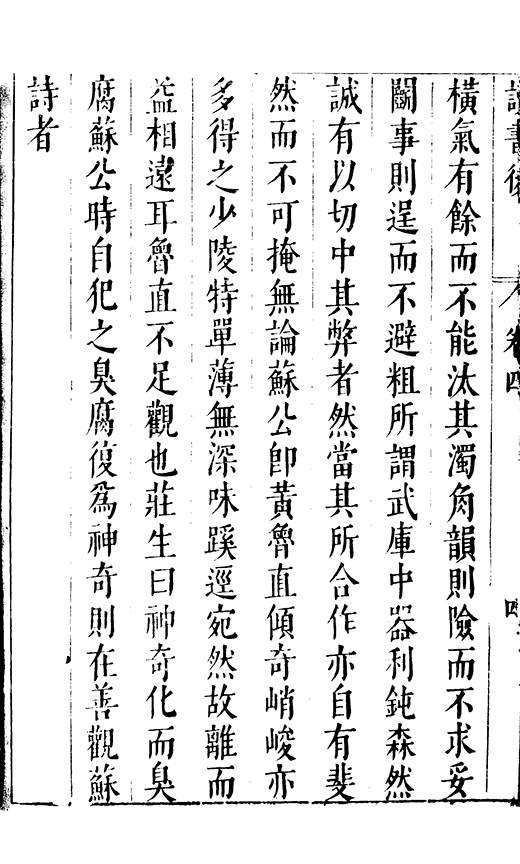 讀書後
卷四
橫氣有餘而不能汰其濁角韻則險而不求妥
鬬事則逞而不避粗所謂武庫中器利鈍森然
誠有以切中其弊者然當其所合作亦自有斐
然而不可掩無論蘇公卽黃魯直傾奇峭峻亦
多得之少陵特單薄無深味蹊逕宛然故離而
益相遠耳魯直不足觀也莊生曰神奇化而臭
腐蘇公時自犯之臭腐復爲神奇則在善觀蘇
詩者